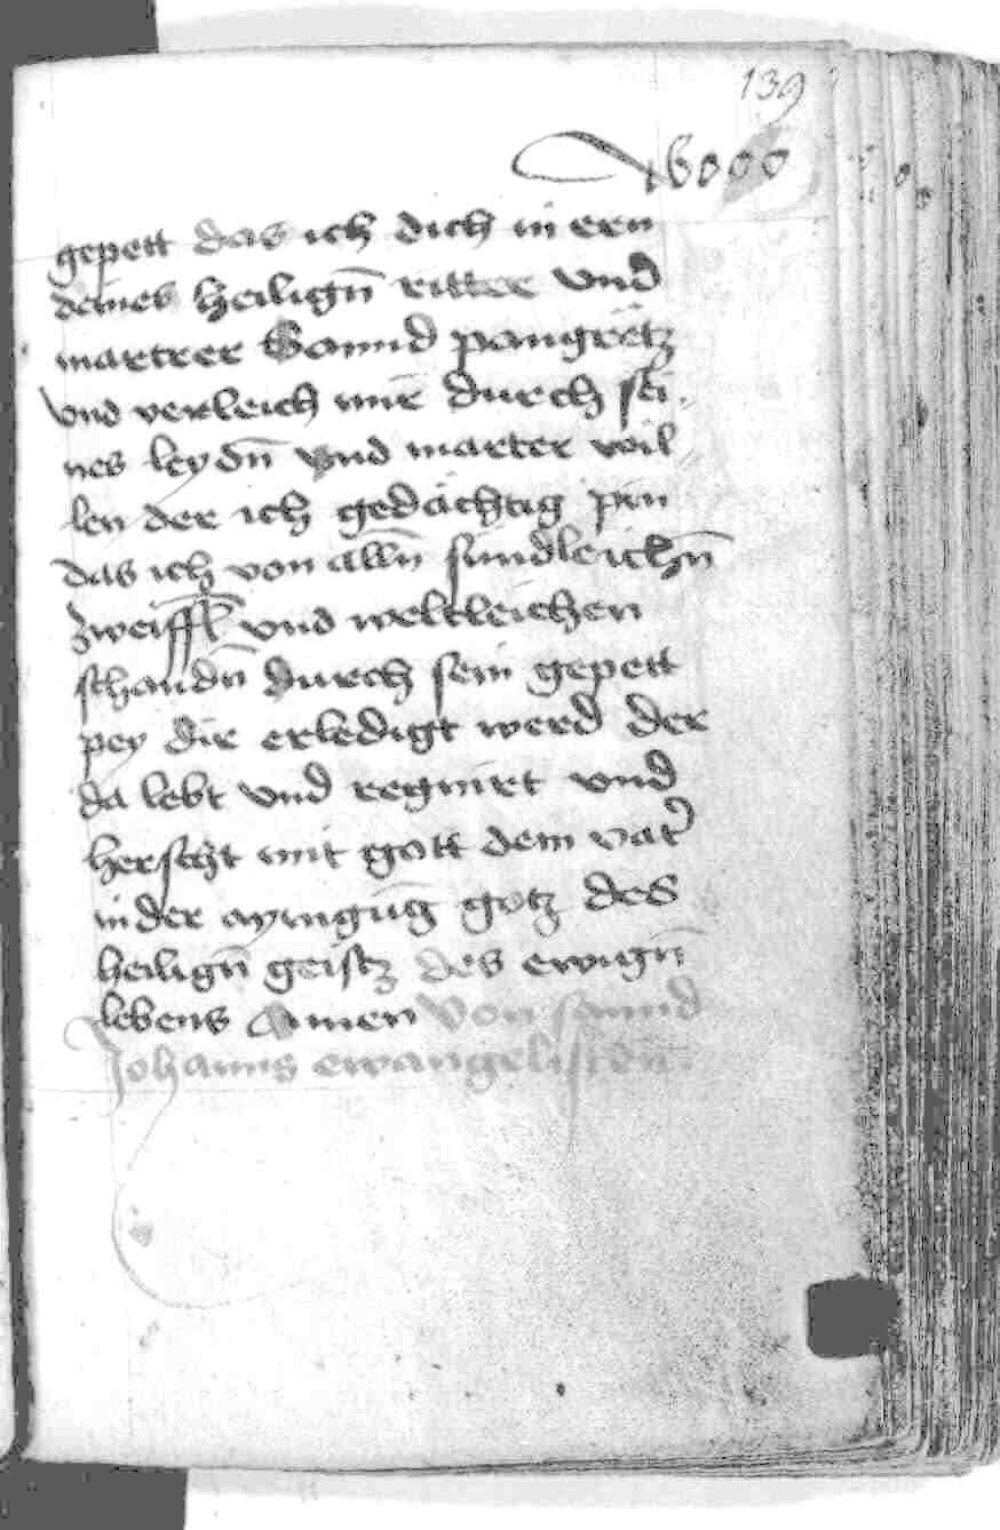 139
gepett das ich dich in ern
deines heilign̄ ritter vnd
martrer Sannd pangretz
vnd verleich mir durch sei
nes leydn̄ vnd marter wil
len der ich gedächtig pin
das ich von alln̄ sundleichn̄
zweiffl vnd weltleichen
schandn̄ durch sein gepett
pey dir erledigt werd der
da lebt vnd regnirt vnd
herscht mit gott dem vat̉
in der aynigūg gotz des
heilign̄ geistz des ewign̄
lebens Amen Von sannd
Johanns ewangelistn̄